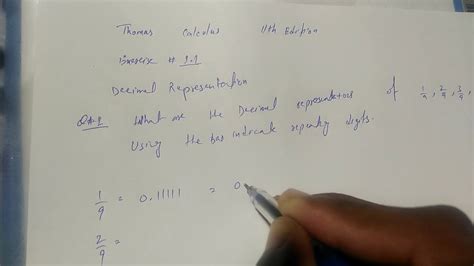 Thomas Calculus 11th Edition
Exercise # 1.1
Decimal Representation
Q#1 What are the Decimal representations of 1/9, 2/9, 3/9,
Using the bar indicate repeating digits.
1/9 = 0.11111 = 0.
2/9 =